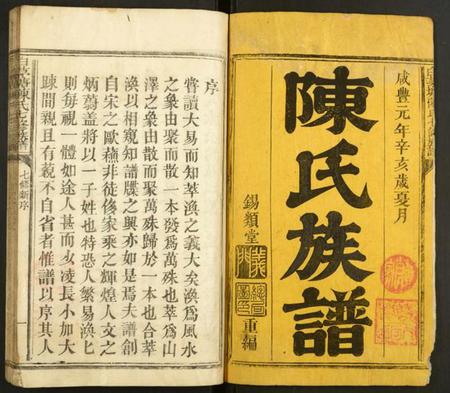 咸豐元年辛亥歲夏月
陳氏族譜
錫類堂
重編
序
嘗讀大易而知萃渙之義大矣渙爲風水
之象由聚而散一本發爲萬殊也萃爲山
澤之象由散而聚萬殊歸於一本也合萃
渙以相觀知譜牒之興亦如是焉夫譜創
自宋之歐蘇非徒侈家乘之輝煌人文之
炳蔚蓋將以一子姓也特恐人繁易渙匕
則每視一體如途人甚而以凌長小加大
踈間親且有親不自省者惟譜以序其人
七修新序